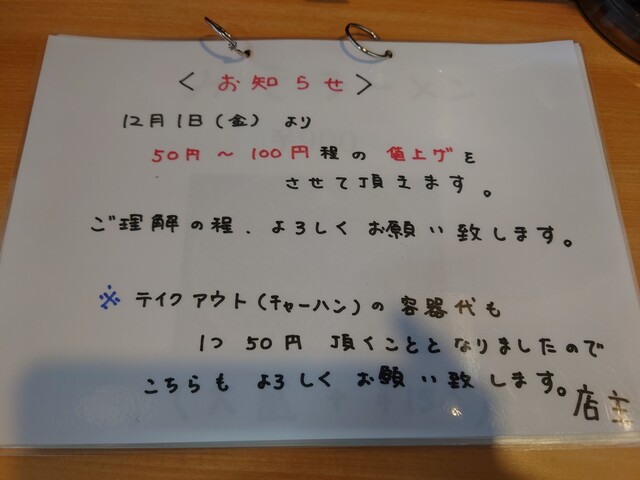 〈 お知らせ 〉
12月1日(金) より
50円～100円程の 値上げを
させて頂きます。
ご理解の程、よろしくお願い致します。
※ テイクアウト(チャーハン)の容器代も
1つ 50円 頂くこととなりましたので
こちらも よろしく お願い致します。
店主